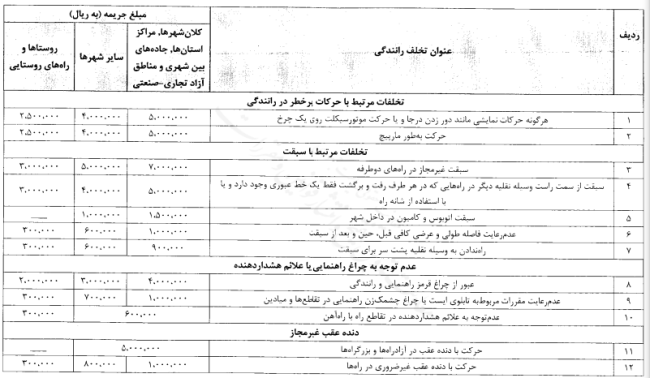 ردیف
عنوان تخلف رانندگی
مبلغ جریمه (به ریال)
کلان‌شهرها، مراکز استان‌ها، جاده‌های بین شهری و مناطق آزاد تجاری-صنعتی
سایر شهرها
روستاها و راه‌های روستایی
تخلفات مرتبط با حرکات پرخطر در رانندگی
۱ هرگونه حرکات نمایشی مانند دور زدن درجا و یا حرکت موتورسیکلت روی یک چرخ ۵,۰۰۰,۰۰۰ ۴,۰۰۰,۰۰۰ ۲,۵۰۰,۰۰۰
۲ حرکت به‌طور مارپیچ ۵,۰۰۰,۰۰۰ ۴,۰۰۰,۰۰۰ ۲,۵۰۰,۰۰۰
تخلفات مرتبط با سبقت
۳ سبقت غیرمجاز در راه‌های دوطرفه ۷,۰۰۰,۰۰۰ ۵,۰۰۰,۰۰۰ ۳,۰۰۰,۰۰۰
۴ سبقت از سمت راست وسیله نقلیه دیگر در راه‌هایی که در هر طرف رفت و برگشت فقط یک خط عبوری وجود دارد و یا
با استفاده از شانه راه ۵,۰۰۰,۰۰۰ ۴,۰۰۰,۰۰۰ ۳,۰۰۰,۰۰۰
۵ سبقت اتوبوس و کامیون در داخل شهر ۱,۵۰۰,۰۰۰ ۱,۰۰۰,۰۰۰ ——
۶ عدم‌رعایت فاصله طولی و عرضی کافی قبل، حین و بعد از سبقت ۱,۰۰۰,۰۰۰ ۶۰۰,۰۰۰ ۳۰۰,۰۰۰
۷ راه‌ندادن به وسیله نقلیه پشت سر برای سبقت ۹۰۰,۰۰۰ ۶۰۰,۰۰۰ ۳۰۰,۰۰۰
عدم توجه به چراغ راهنمایی یا علائم هشداردهنده
۸ عبور از چراغ قرمز راهنمایی و رانندگی ۴,۰۰۰,۰۰۰ ۳,۰۰۰,۰۰۰ ۲,۰۰۰,۰۰۰
۹ عدم‌رعایت مقررات مربوط‌به تابلوی ایست یا چراغ چشمک‌زن راهنمایی در تقاطع‌ها و میادین ۱,۰۰۰,۰۰۰ ۷۰۰,۰۰۰ ۳۰۰,۰۰۰
۱۰ عدم‌توجه به علائم هشداردهنده در تقاطع راه با راه‌آهن ۶۰۰,۰۰۰ ۳۰۰,۰۰۰
دنده عقب غیرمجاز
۱۱ حرکت با دنده عقب در آزادراه‌ها و بزرگراه‌ها ۵,۰۰۰,۰۰۰ ——
۱۲ حرکت با دنده عقب غیرضروری در راه‌ها ۱,۰۰۰,۰۰۰ ۸۰۰,۰۰۰ ۳۰۰,۰۰۰